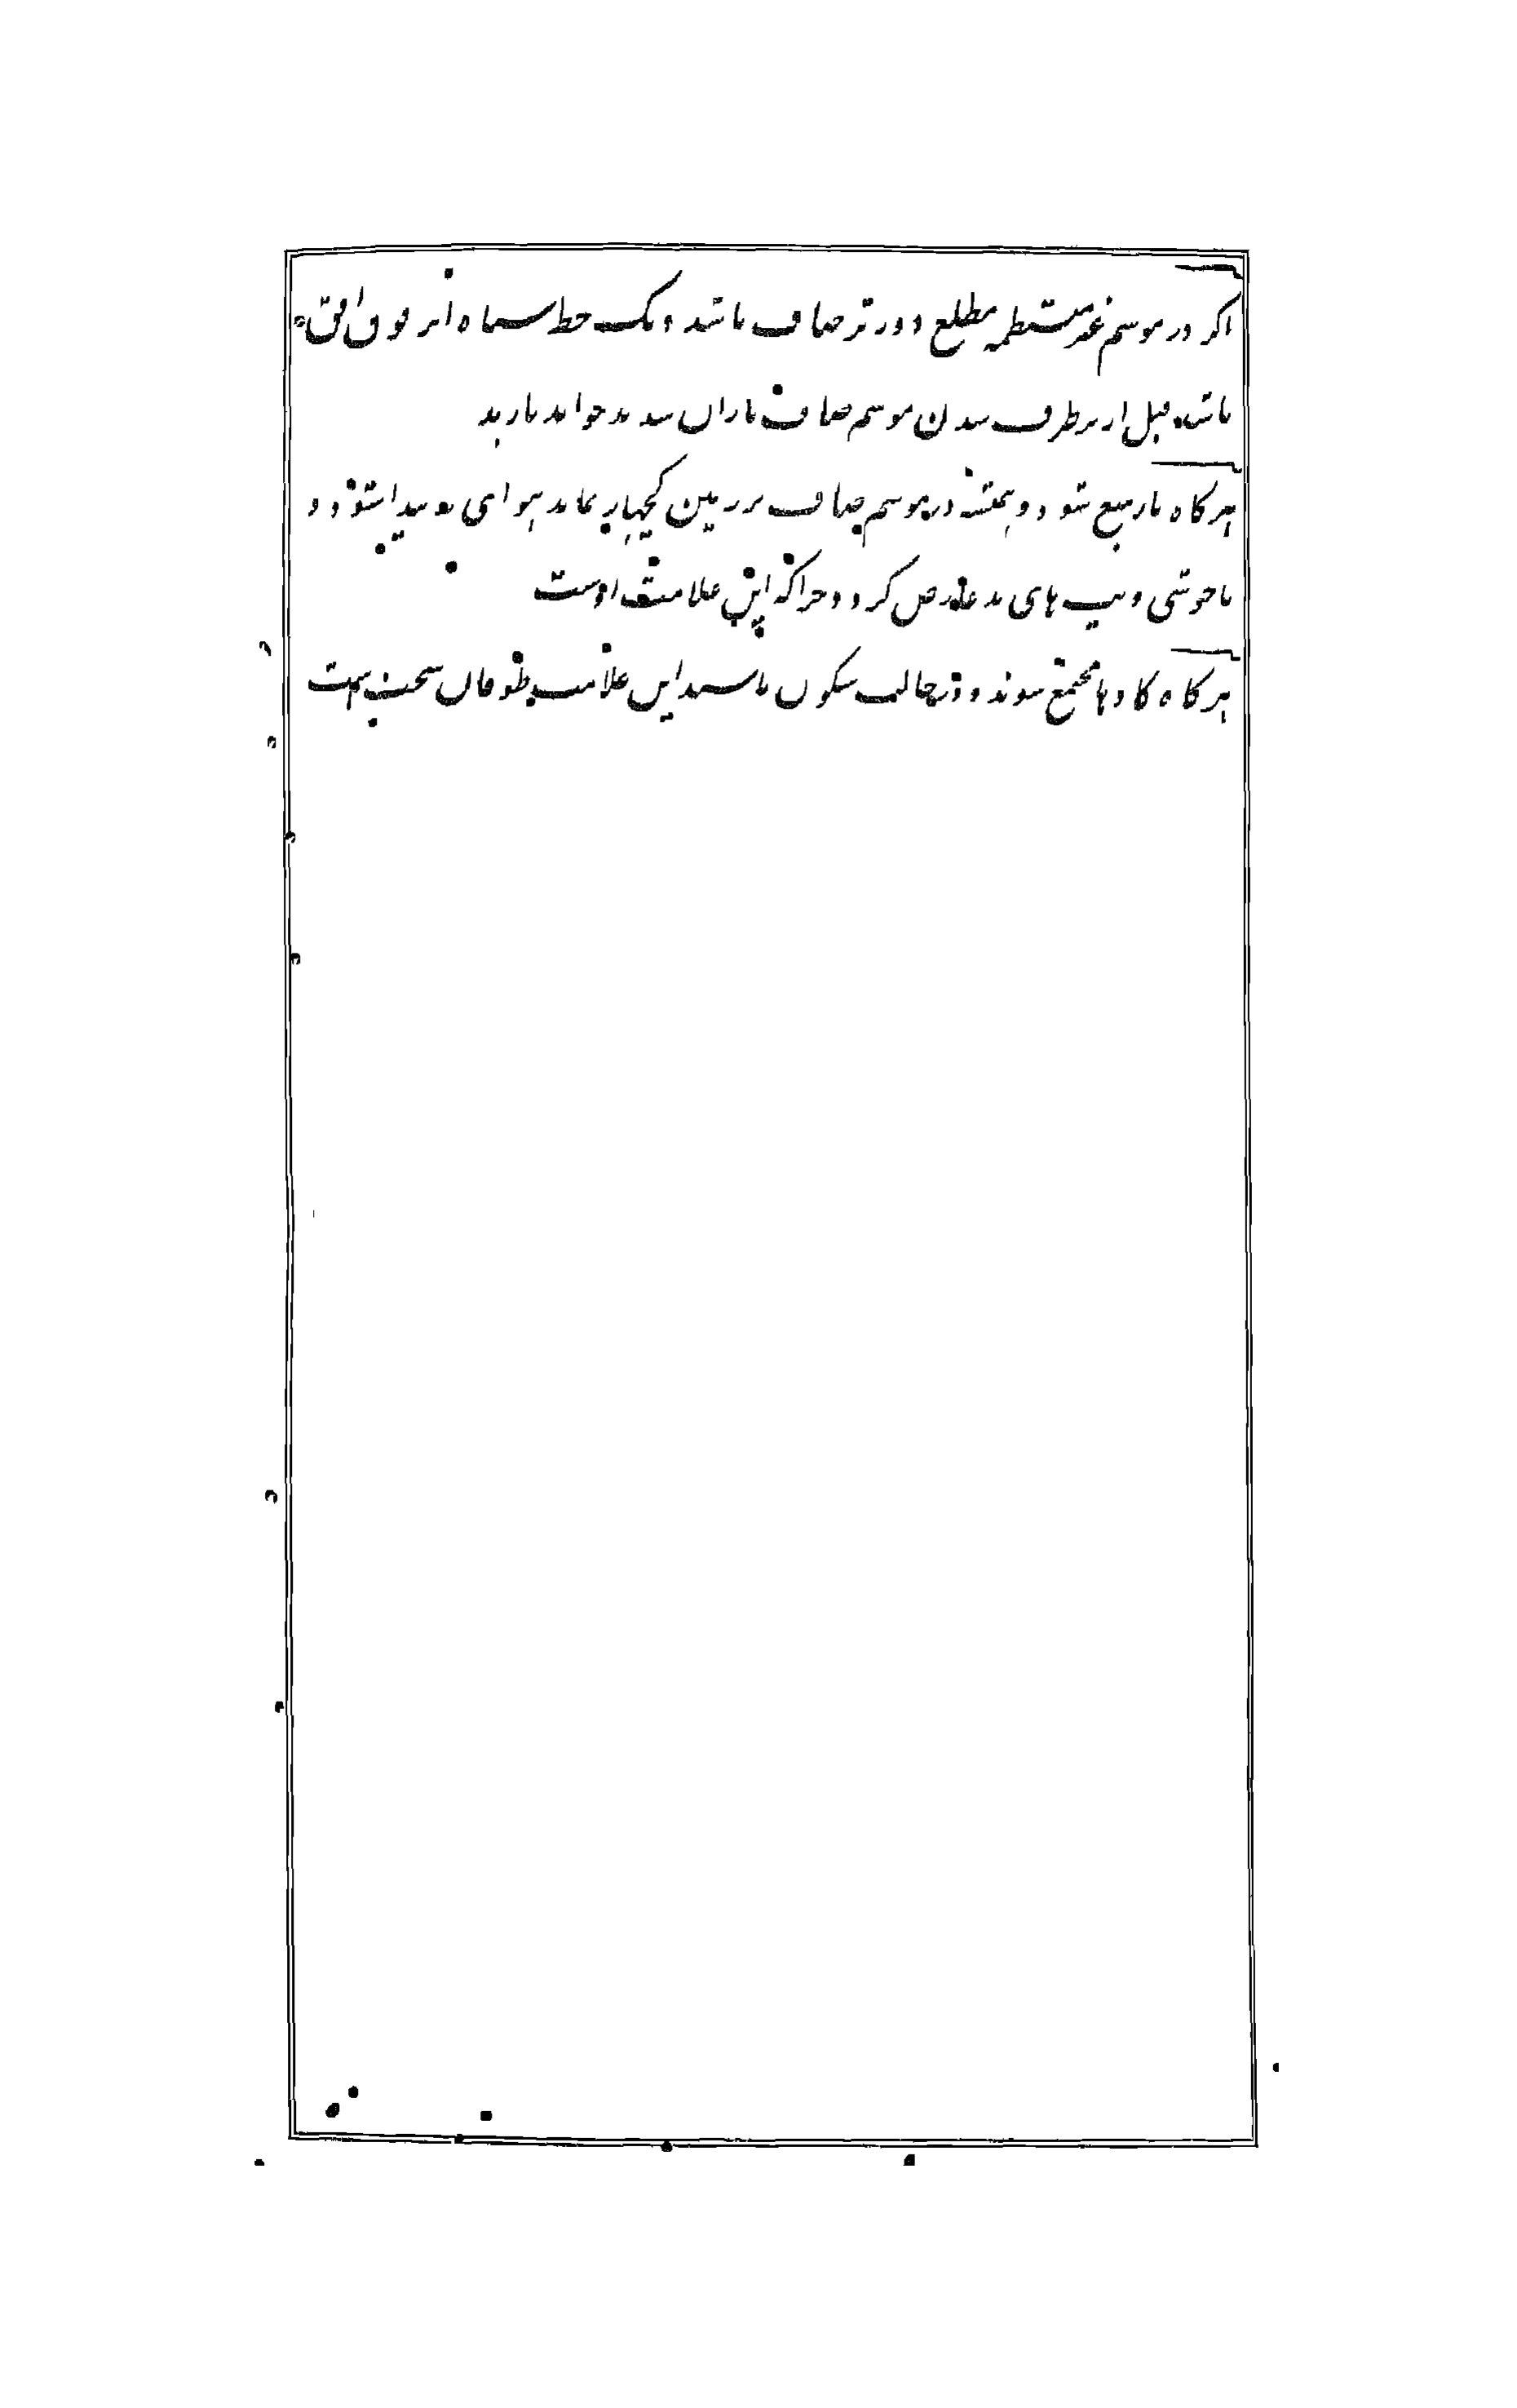 اگر در موسم غیر منتظمه مطلع دورتر صاف باشد و یک خط سیاه ابر فوق افق
باشد قبل از برطرف شدن موسم صاف باران شدید خواهد بارید
هرگاه مار جمع شود و همیشه در موسم صاف بر زمین بماند هوای بد پیدا شود و
ناخوشی و تب های بد عارض گردد چرا که این علامت اوست
هرگاه گاوها مجتمع شوند و در حالت سکون باشند این علامت طوفان سخت است